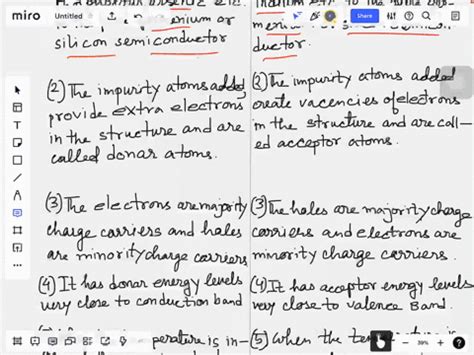 miro
Untitled
Share
silicon semiconductor
ductor.
(2) The impurity atoms added
provide extra electrons
in the structure and are
called donar atoms.
(2) The impurity atoms added
create vacencies of electrons
in the structure and are call-
ed acceptor atoms.
(3) The electrons are majority
charge carriers and holes
are minority charge carriers
(3) The holes are majority charge
carriers and electrons are
minority charge carriers.
(4) It has donar energy levels
very close to conduction band
(4) It has acceptor energy levels
very close to valence Band.
perature is in-
(5) When the
39%